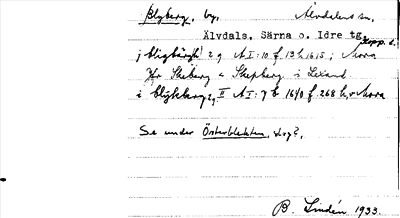 Blyberg, by. Älvdalens sn.
Älvdals. Särna o. Idre tg. Kopp. l.
j blygbärgh 2g A I: 10 f 13 h 1615; Mora
Jfr Skeberg < Skepberg i Leksand
i blijkberg 2g II A I: 7 b 1640 f. 268 h, v Mora
Se under Österblekten, skog?.
B Lindén 1933.